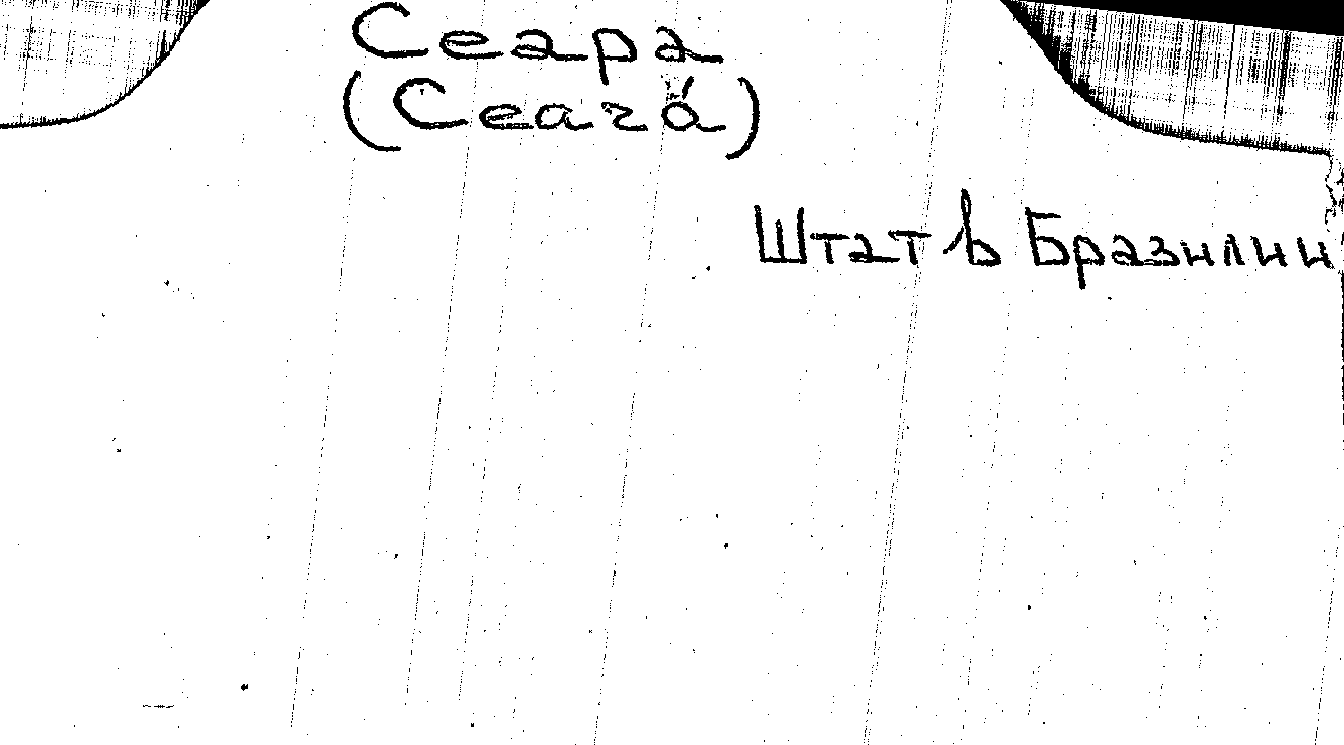 Сеара
(Ceará)
Штат в Бразилии